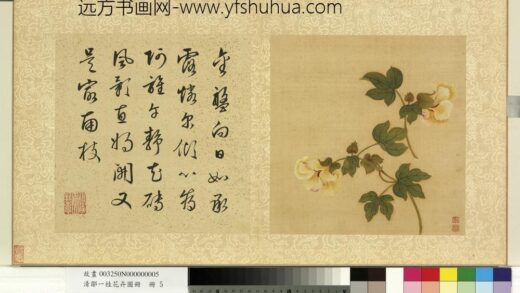 远方书画网-www.yfshuhua.com
金盤向日如承
露憐尔傾心為
阿誰午静花磚
風影直開又
是南枝
故畫 003250N000000005
清鄒一桂花卉圖冊 冊 5